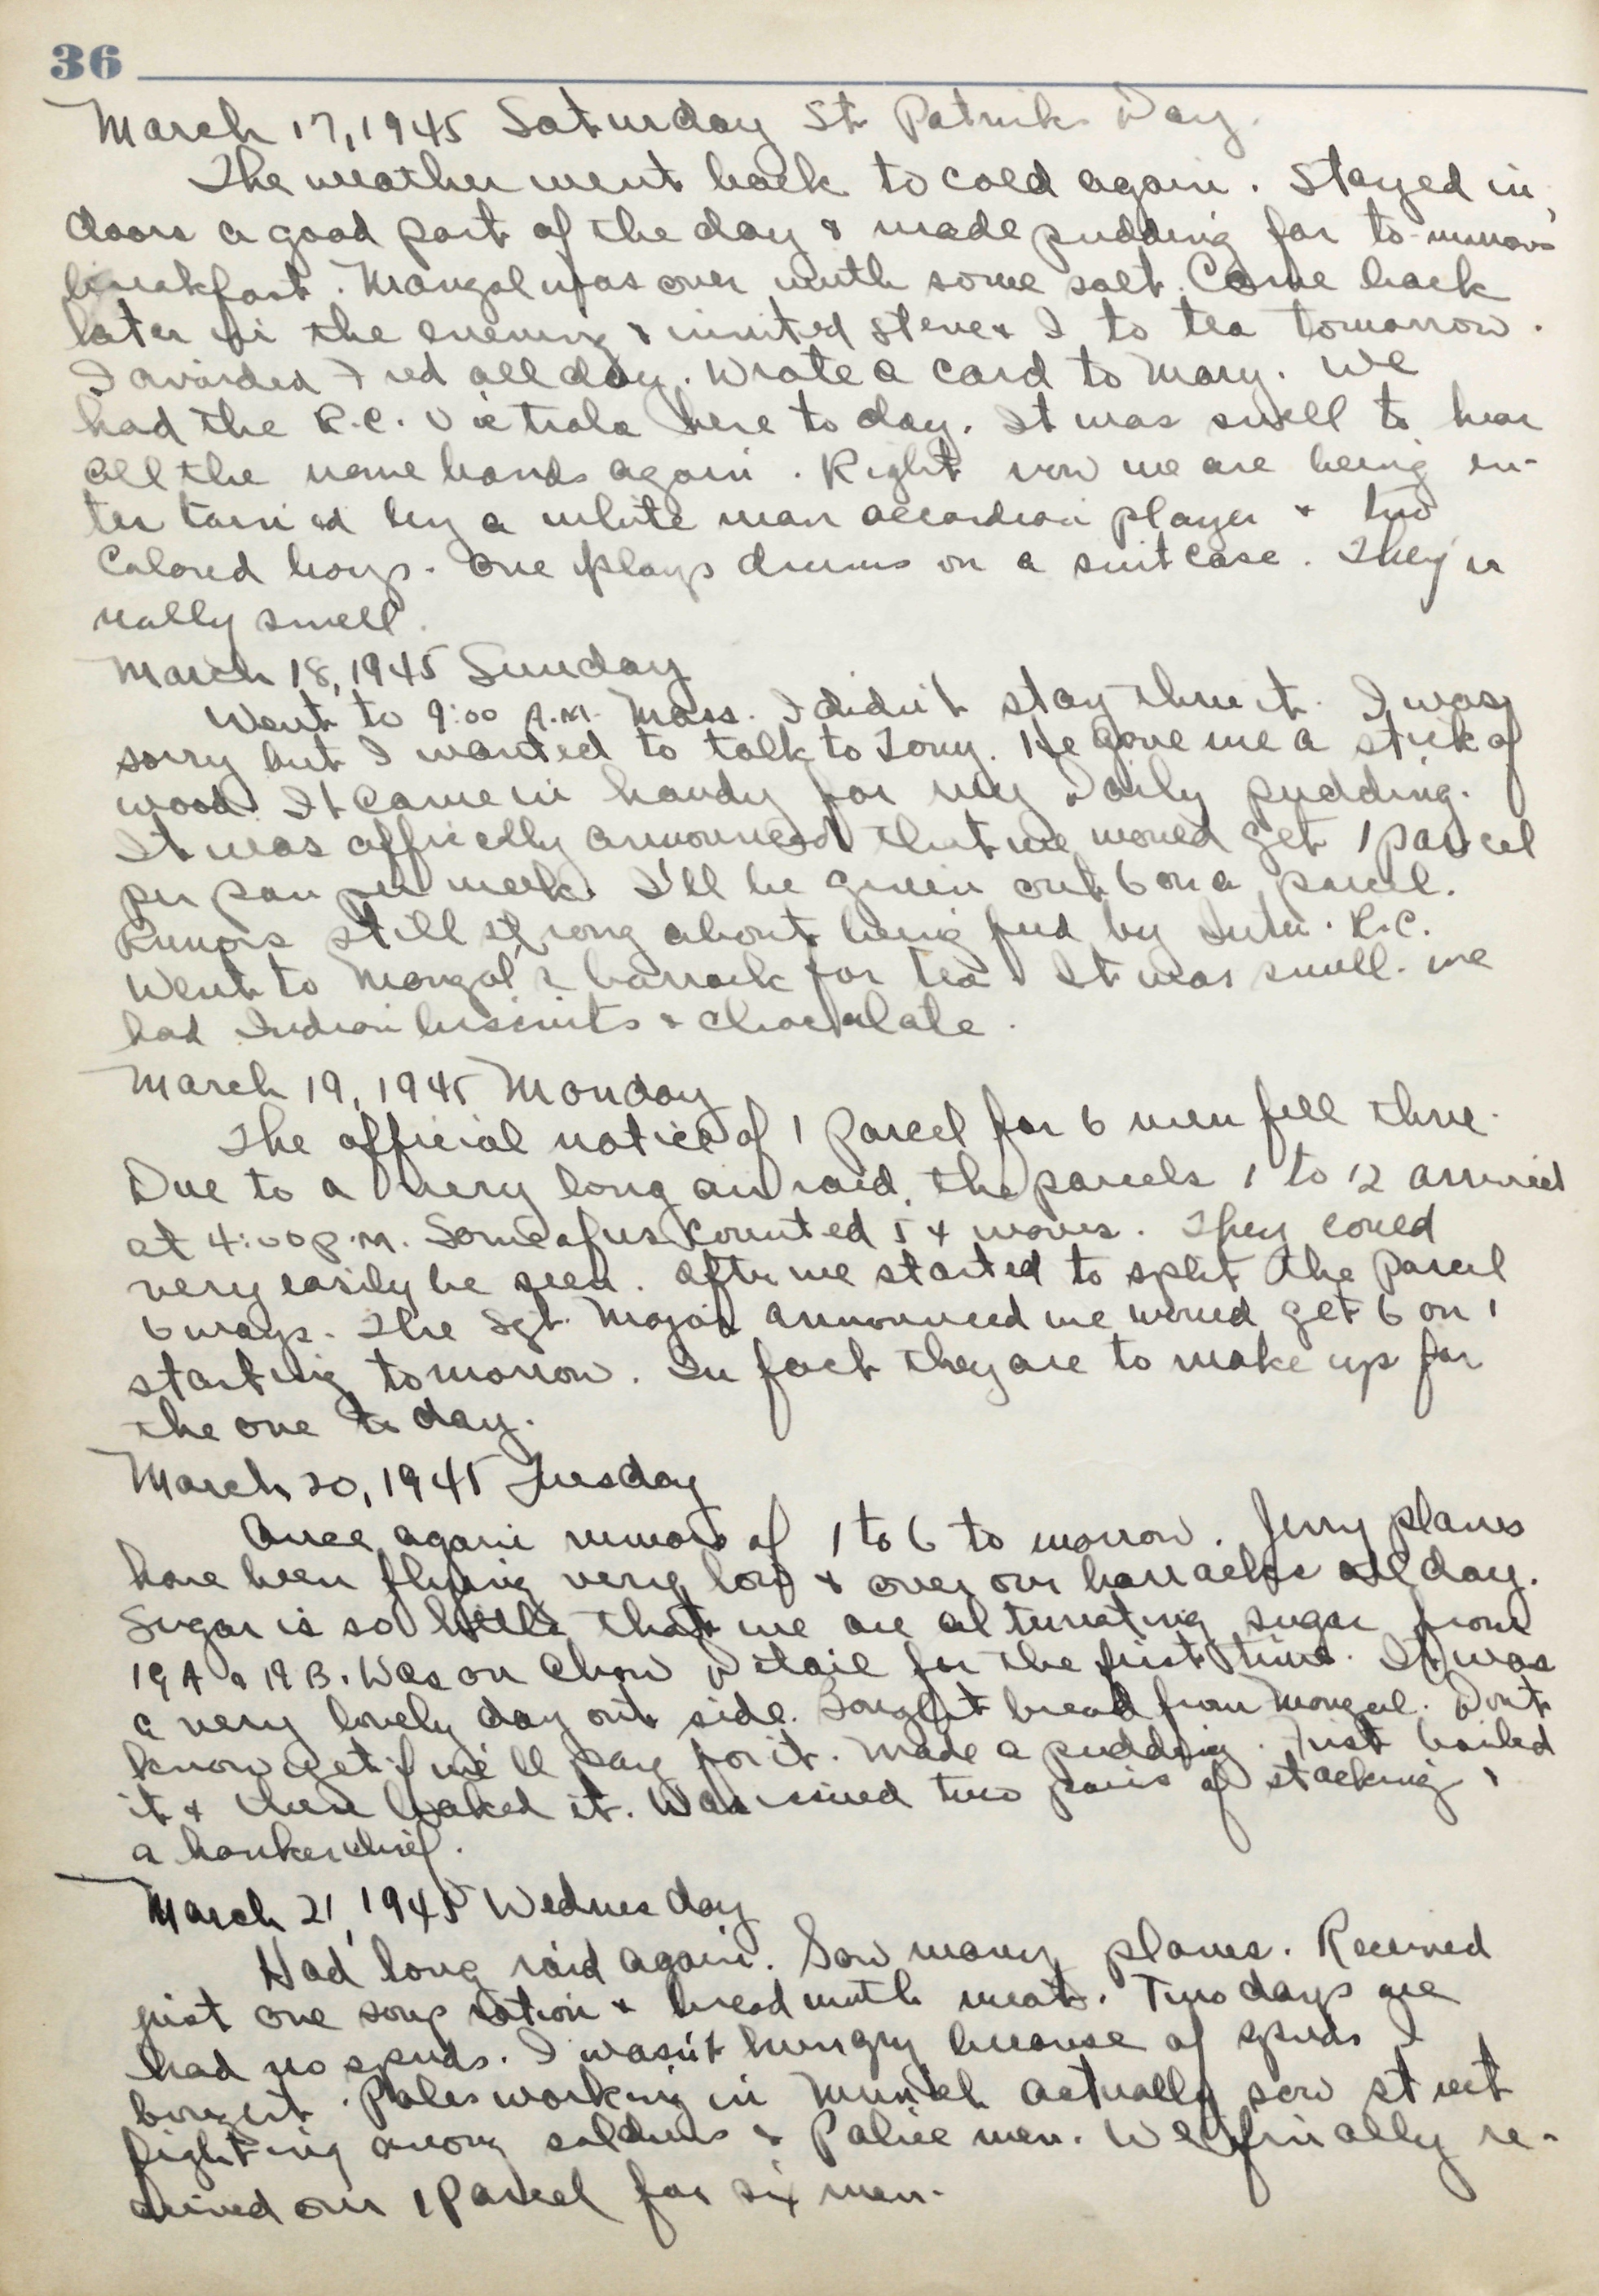 36
March 17, 1945 Saturday St Patricks Day.
The weather went back to cold again. Stayed in,
doors a good part of the day & made pudding for to-morrows
breakfast. Mangol was over with some salt. Came back
later in the evening & invited Steve & I to tea tomorrow.
I avoided Fred all day. Wrote a card to Mary. We
had the R.C. Victrola here to day. It was swell to hear
all the name bands again. Right now we are being en-
tertained by a white man accordion player & two
Colored boys. One plays drums on a suit case. They'r
really swell.
March 18, 1945 Sunday
Went to 9:00 A.M. Mass. I didn't stay thru it. I was
sorry but I wanted to talk to Tony. He gave me a stick of
wood. It came in handy for my Daily pudding.
It was officially announced that we would get 1 parcel
per man per week. I'll be given out 6 on a parcel.
Rumors still strong about being fed by Inter. R.C.
Went to Mangol's barrack for tea. It was swell. We
had Indian biscuits & chocalate.
March 19, 1945 Monday
The official notice of 1 parcel for 6 men fell thru.
Due to a very long air raid, the parcels 1 to 12 arrived
at 4:00 p.m. Some of us counted 54 waves. They could
very easily be seen. After we started to split the parcel
6 ways. The Sgt. Major announced we would get 6 on 1
starting tomorrow. In fact they are to make up for
the one to day.
March 20, 1945 Tuesday
Once again rumors of 1 to 6 to morrow. Jerry planes
have been flying very low & over our barracks all day.
Sugar is so little that we are alternating sugar from
19 A & 19 B. Was on Chow Detail for the first time. It was
a very lovely day out side. Bought bread from Mongol. Don't
know yet if we'll pay for it. Made a pudding. Just boiled
it & then baked it. Was issued two pairs of stocking &
a hankerchief.
March 21, 1945 Wednesday
Had long raid again. Saw many planes. Received
just one soup ration & bread with meat. Two days we
had no spuds. I wasn't hungry because of spuds I
bought. Poles working in Munich actually saw street
fighting among soldiers & Police men. We finally re-
ceived our 1 Parcel for six men.